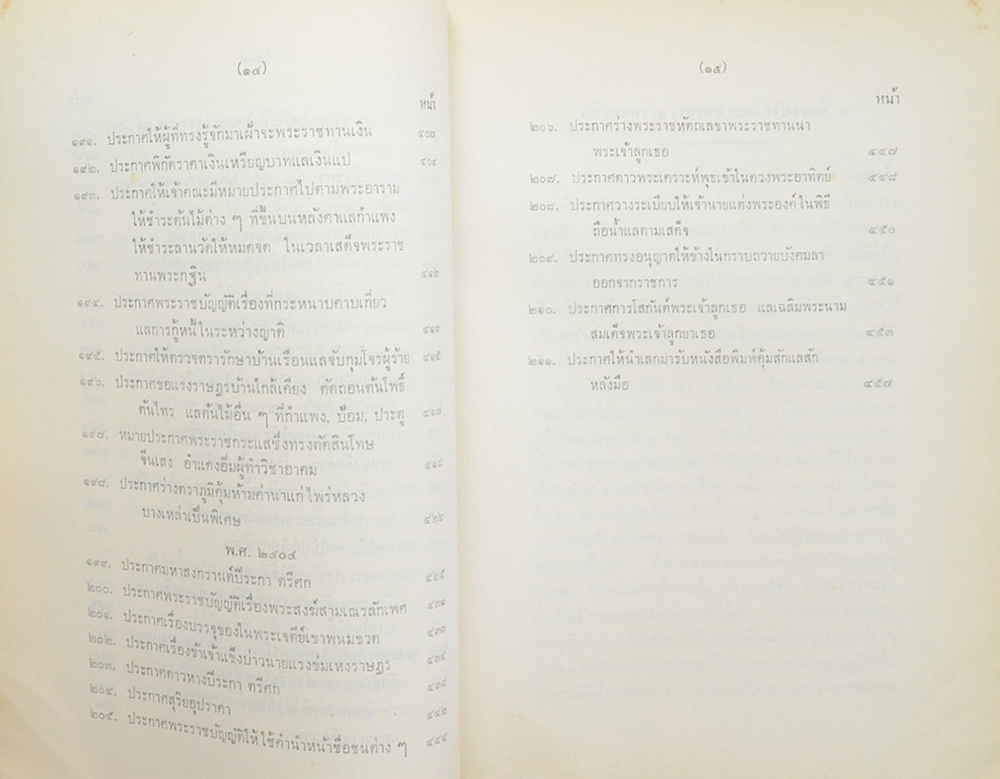 (๑๔)
หน้า
๑๙๑. ประกาศให้ผู้ที่ทรงรู้จักมาเฝ้าจะพระราชทานเงิน ๔๐๗
๑๙๒. ประกาศพิกัดราคาเงินเหรียญบาทแลเงินแป ๔๐๙
๑๙๓. ประกาศให้เจ้าคณะมีหมายประกาศไปตามพระอาราม
ให้ชำระต้นไม้ต่าง ๆ ที่ขึ้นบนหลังคาแลกำแพง
ให้ชำระลานวัดให้หมดจด ในเวลาเสด็จพระราช
ทานพระกฐิน ๔๑๒
๑๙๔. ประกาศพระราชบัญญัติเรื่องที่กระหนาบคาบเกี่ยว
แลการกู้หนี้ในระหว่างญาติ ๔๑๓
๑๙๕. ประกาศให้ตรวจตรารักษาบ้านเรือนแลจับกุมโจรผู้ร้าย ๔๑๕
๑๙๖. ประกาศขอแรงราษฎรบ้านใกล้เคียง ตัดถอนต้นโพธิ์
ต้นไทร แลต้นไม้อื่น ๆ ที่กำแพง, ป้อม, ประตู ๔๑๘
๑๙๗. หมายประกาศพระราชกระแสซึ่งทรงตัดสินโทษ
จีนเสง อำแดงอิ่มผู้ทำวิชาอาคม ๔๑๙
๑๙๘. ประกาศร่างตราภูมิคุ้มห้ามค่านาแก่ไพร่หลวง
บางเหล่าเป็นพิเศษ ๔๒๒
พ.ศ. ๒๔๐๔
๑๙๙. ประกาศมหาสงกรานต์ปีระกา ตรีศก ๔๒๕
๒๐๐. ประกาศพระราชบัญญัติเรื่องพระสงฆ์สามเณรลักเพศ ๔๓๑
๒๐๑. ประกาศเรื่องบรรจุของในพระเจดีย์เขาพนมขวด ๔๓๓
๒๐๒. ประกาศเรื่องข้าเจ้าแข็งบ่าวนายแรงข่มเหงราษฎร ๔๓๔
๒๐๓. ประกาศดาวหางปีระกา ตรีศก ๔๓๘
๒๐๔. ประกาศสุริยอุปราคา ๔๔๒
๒๐๕. ประกาศพระราชบัญญัติให้ใช้คำนำหน้าชื่อชนต่าง ๆ ๔๔๔
(๑๕)
หน้า
๒๐๖. ประกาศร่างพระราชหัตถเลขาพระราชทานนา
พระเจ้าลูกเธอ ๔๔๗
๒๐๗. ประกาศดาวพระเคราะห์พุธเข้าในดวงพระอาทิตย์ ๔๔๘
๒๐๘. ประกาศวางระเบียบให้เจ้านายแต่งพระองค์ในพิธี
ถือน้ำแลตามเสด็จ ๔๕๐
๒๐๙. ประกาศทรงอนุญาตให้ข้างในกราบถวายบังคมลา
ออกจากราชการ ๔๕๑
๒๑๐. ประกาศการโสกันต์พระเจ้าลูกเธอ แลเฉลิมพระนาม
สมเด็จพระเจ้าลูกยาเธอ ๔๕๓
๒๑๑. ประกาศให้นำเลกมารับหนังสือพิมพ์คุ้มสักแลสัก
หลังมือ ๔๕๗